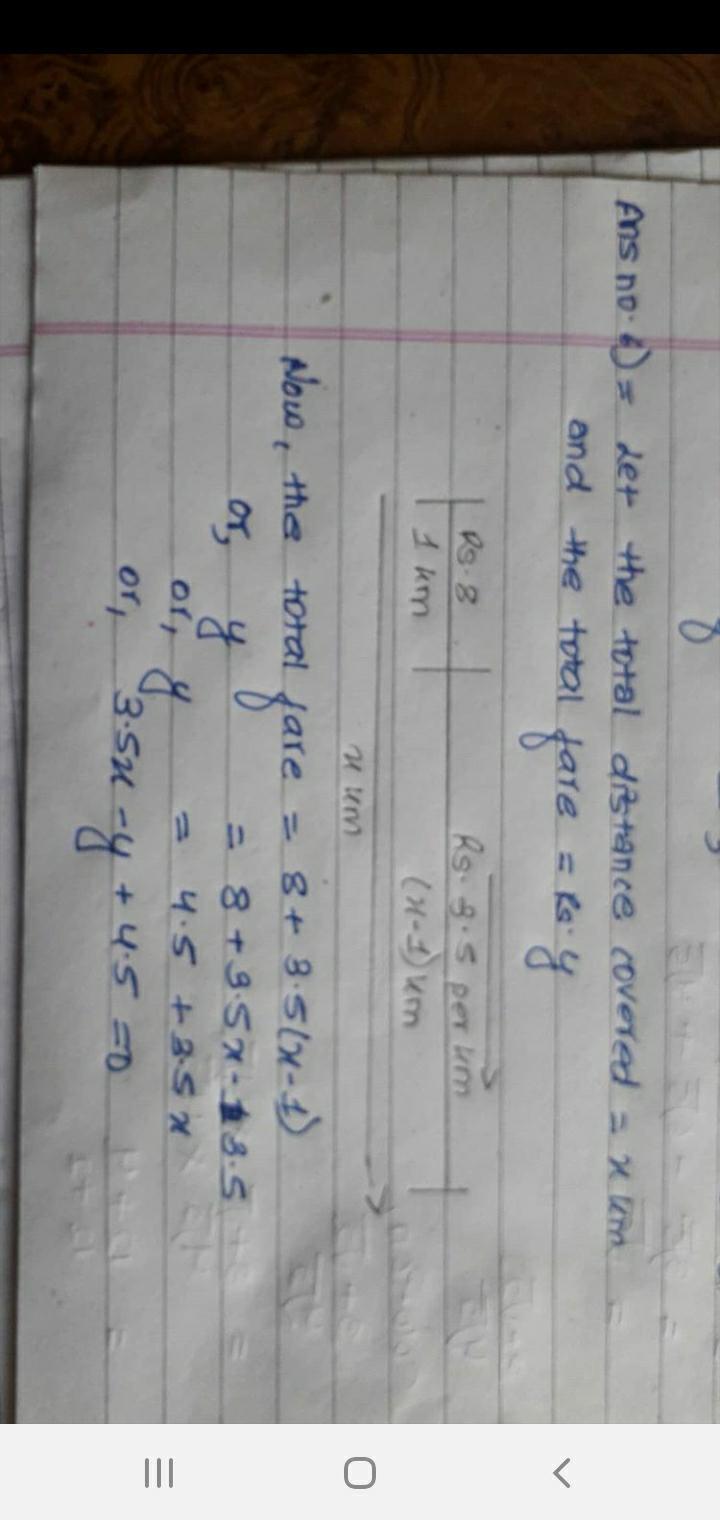 Ans no. 6) = Let the total distance covered = x km
and the total fare = Rs. y
Rs. 8
Rs. 3.5 per km
1 km
(x-1) km
x km
Now, the total fare = 8 + 3.5(x-1)
or, y = 8 + 3.5x - 3.5
or, y = 4.5 + 3.5x
or, 3.5x - y + 4.5 = 0